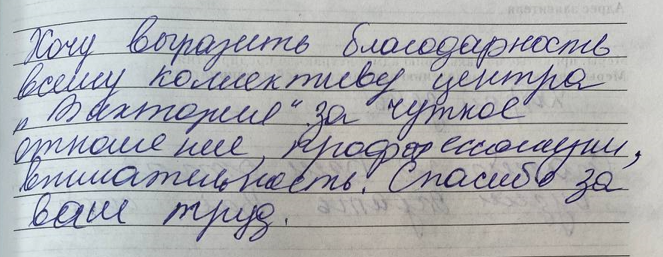 Хочу выразить благодарность
всему коллективу центра
„Виктория" за чуткое
отношение, профессионализм,
внимательность. Спасибо за
ваш труд.